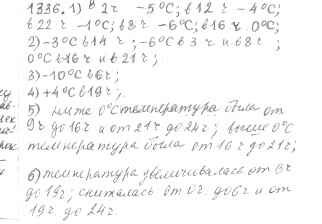 1336. 1) в 2 ч -5°C; в 12 ч -4°C;
в 22 ч -1°C; в 8 ч -6°C; в 16 ч 0°C;
2) -3°C в 14 ч ; -6°C в 3 ч и в 8 ч ;
0°C в 16 ч и в 21 ч ;
3) -10°C в 6 ч ;
4) +4°C в 19 ч ;
5) ниже 0°C температура была от
0 ч до 16 ч и от 21 ч до 24 ч ; выше 0°C
температура была от 16 ч до 21 ч ;
6) температура увеличивалась от 6 ч
до 19 ч ; снижалась от 0 ч. до 6 ч и от
19 ч до 24 ч.